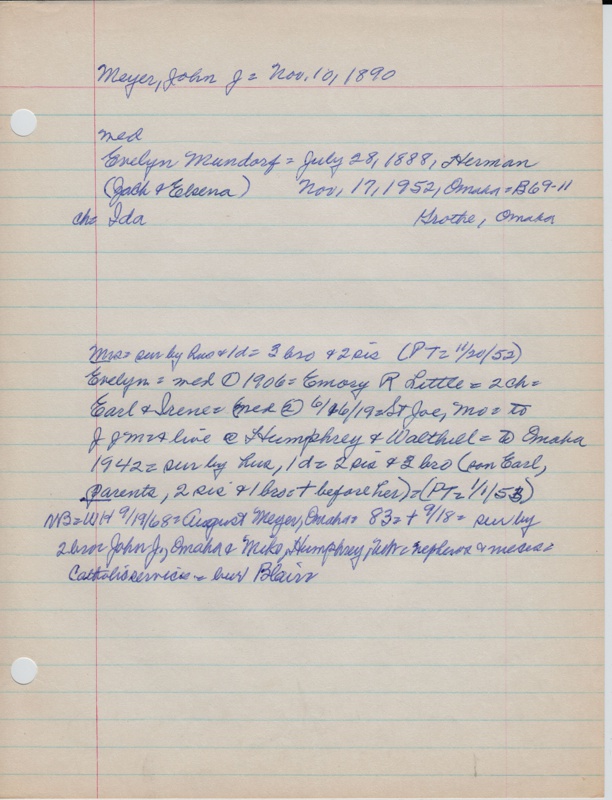 Meyer, John J = Nov. 10, 1890
med
Evelyn Mundorf = July 28, 1888, Herman
(Jack & Elsena) Nov. 17, 1952, Omaha = B69-11
ch = Ida Omaha
Mrs = sur by hus & 1d = 3 bro & 2 sis (PT = 11/20/52)
Evelyn = med ① 1906 = Emory R Little = 2 ch =
Earl & Irene = med ② St Joe, Mo = to
J J M = & live @ Humphrey & Walthill = to Omaha
1942 = sur by hus, 1d = 2 sis & 3 bro (son Earl,
parents, 2 sis & 1 bro = + before her) = (PT = 1/1/53)
NB = WH 9/19/68 = August Meyer, Omaha = 83 = + 9/18 = sur by
2 bro = John J., Omaha & Mike, Humphrey, = nephews & nieces =
Catholic services = bur Blair